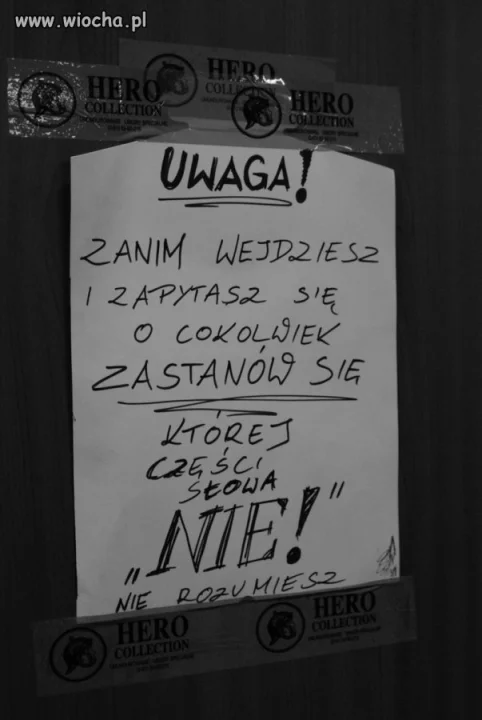 www.wiocha.pl
HERO
HERO
COLLECTION
HERO
COLLECTION
UWAGA!
ZANIM WEJDZIESZ
I ZAPYTASZ SIĘ
O COKOLWIEK
ZASTANÓW SIĘ
KTÓREJ
CZĘŚCI
SŁOWA
„NIE!”
NIE ROZUMIESZ
HERO
COLLECTION
HERO
COLLECTION